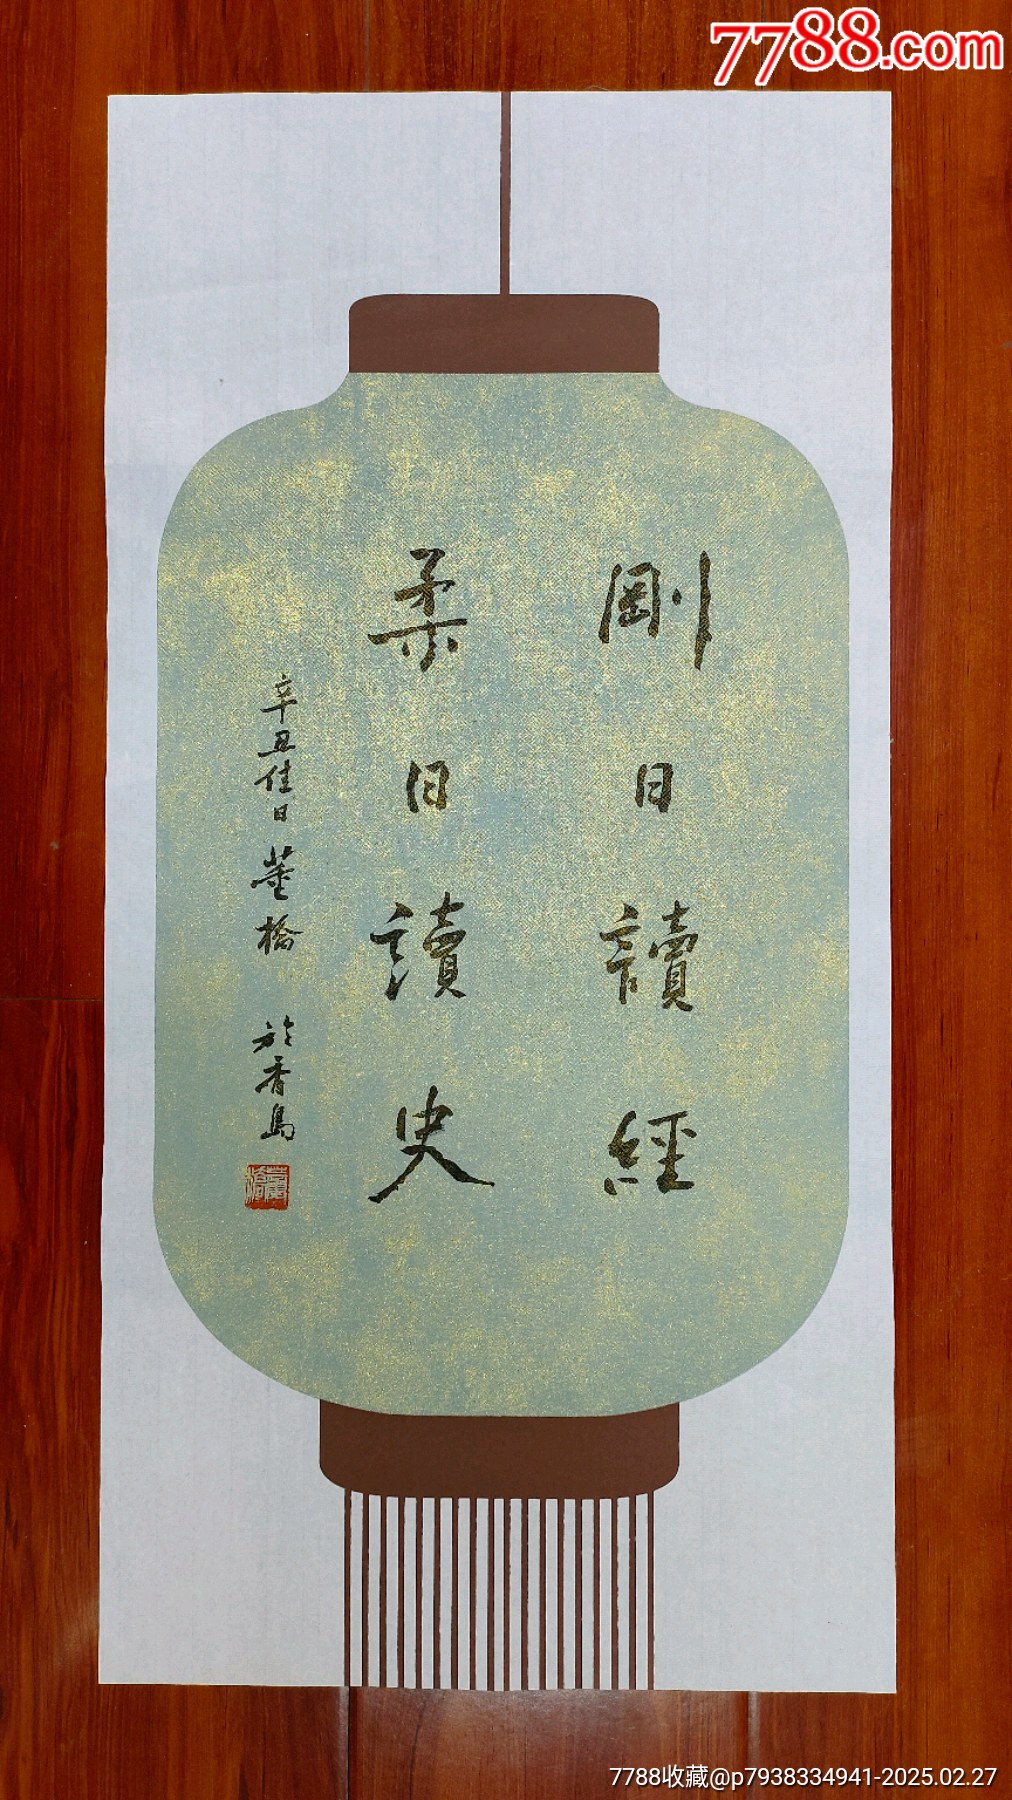 7788.com
剛日讀經
柔日讀史
辛丑佳日 董橋 於香島
董橋
7788收藏@p7938334941-2025.02.27